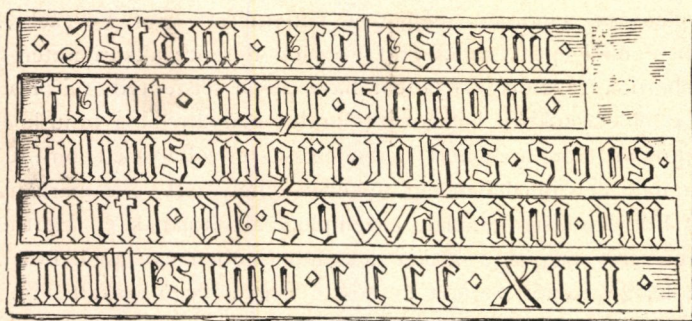 · Istam · ecclesiam ·
fecit · mgr · simon ·
filius · mgri · johis · soos ·
dicti · de · sowar · ano · dni
millesimo · c c c c · XIII ·